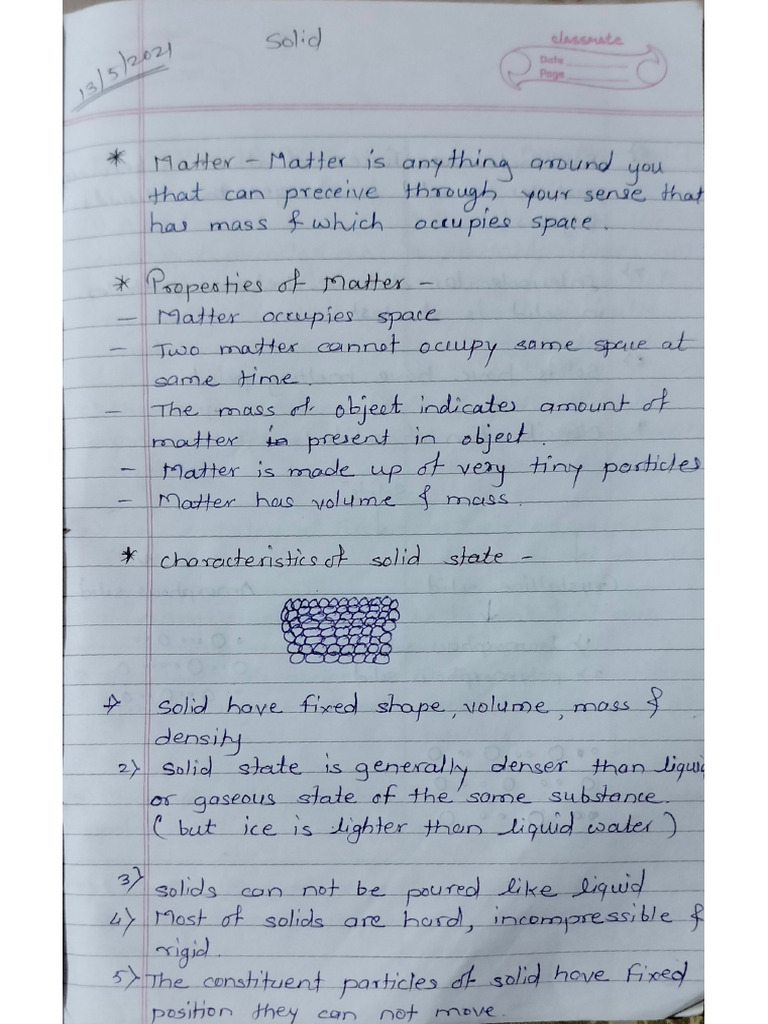 Solid
classmate
13/5/2021
Date
Page
* Matter - Matter is anything around you
that can preceive through your sense that
has mass & which occupies space.
* Properties of Matter -
- Matter occupies space
- Two matter cannot occupy same space at
same time.
- The mass of object indicates amount of
matter in present in object.
- Matter is made up of very tiny particles
- Matter has volume & mass.
* characteristics of solid state -
1) Solid have fixed shape, volume, mass &
density
2) Solid state is generally denser than liquid
or gaseous state of the same substance.
(but ice is lighter than liquid water)
3) solids can not be poured like liquid
4) Most of solids are hard, incompressible &
rigid.
5) The constituent particles of solid have fixed
position they can not move.